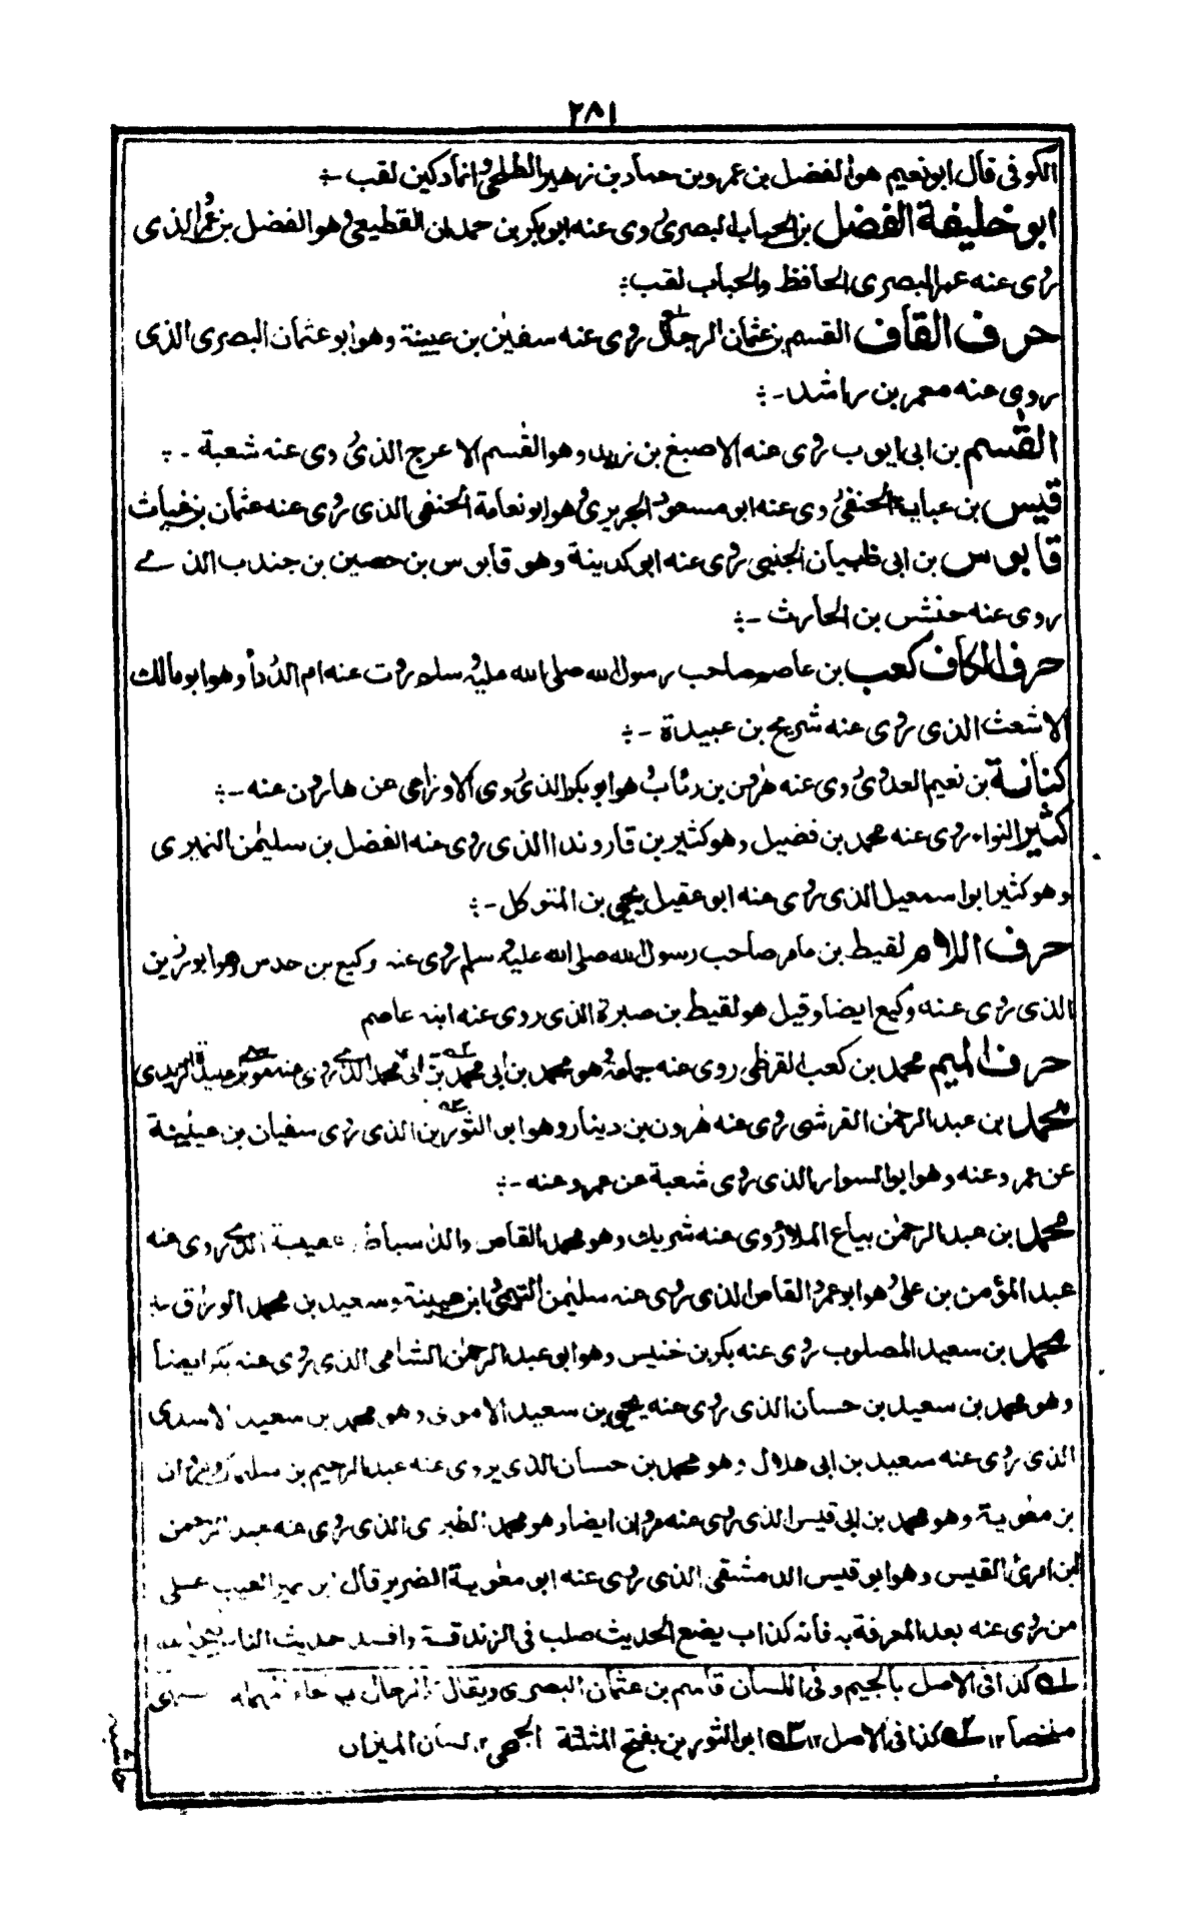 ٢٨١
الكوفى قال ابونعيم هو الفضل بن عمرو بن حماد بن زهير الطلحى وانما دكين لقب -:
ابوخليفة الفضل بن الحباب البصرى روى عنه ابوبكر بن حمدان القطيعى وهو الفضل بن عمر الذى
روى عنه عمر البصرى الحافظ والحباب لقب:
حرف القاف القسم بن عثمان الرجال روى عنه سفيٰن بن عيينة وهو ابوعثمان البصرى الذى
روى عنه معمر بن راشد -:
القٰسم بن ابى ايوب روى عنه الاصبغ بن زيد وهو القٰسم الاعرج الذى روى عنه شعبة -:
قيس بن عباية الحنفى روى عنه ابو مسعود الجريرى وهو ابو نعامة الحنفى الذى روى عنه عثمان بن غياث
قابوس بن ابى ظبيان الجنبى روى عنه ابوكدينة وهو قابوس بن حصين بن جندب الذے
روى عنه حنش بن الحارث -:
حرف الكاف كعب بن عاصم صاحب رسول الله صلى الله عليه وسلم روت عنه ام الدرداء وهو ابومالك
الاشعث الذى روى عنه شريح بن عبيدة -:
كنانة بن نعيم العدوى روى عنه هٰرون بن رئاب وهو ابوبكر الذى روى الاوزاعى عن هارون عنه -:
كثير النواء روى عنه محمد بن فضيل وهو كثير بن قاروندا الذى روى عنه الفضل بن سليمٰن النميرى
وهو كثير ابو اسمعيل الذى روى عنه ابو عقيل يحيى بن المتوكل -:
حرف اللام لقيط بن عامر صاحب رسول الله صلى الله عليه وسلم روى عنه وكيع بن حدس وهو ابورزين
الذى روى عنه وكيع ايضا وقيل هو لقيط بن صبرة الذى روى عنه ابنه عاصم
حرف الميم محمد بن كعب القرظى روى عنه جماعة وهو محمد بن ابى محمد بن ابى محمد الذے روى عنه موسى بن عبيدة الربذى
محمد بن عبد الرحمٰن القرشى روى عنه هٰرون بن دينار وهو ابو الثورين الذى روى سفيان بن عيينة
عن عمرو عنه وهو ابو السوار الذى روى شعبة عن عمرو عنه -:
محمد بن عبد الرحمٰن بياع الملاء روى عنه شريك وهو محمد القاص والد سباط الذے روى عنه
عبد المؤمن بن على وهو ابوعمر القاص الذى روى عنه سليمٰن التيمى وابن عيينة وسعيد بن محمد الوراق
محمد بن سعيد المصلوب روى عنه بكر بن خنيس وهو ابو عبد الرحمٰن الشامى الذى روى عنه بكر ايضا
وهو محمد بن سعيد بن حسان الذى روى عنه يحيى بن سعيد الاموى وهو محمد بن سعيد الاسدى
الذى روى عنه سعيد بن ابى هلال وهو محمد بن حسان الذى يروى عنه عبد الرحيم بن سليمان ومروان
بن معٰوية وهو محمد بن ابى قيس الذى روى عنه مروان ايضا وهو محمد الطبرى الذى روى عنه عبد الرحمن
ابن امرئ القيس وهو ابو قيس الدمشقى الذى روى عنه ابو معٰوية الضرير قال ابن نمير العيب على
من روى عنه بعد المعرفة به فانه كذاب يضع الحديث صلب فى الزندقة وافسد حديث الناس
لـه كذا فى الاصل بالجيم وفى اللسان قاسم بن عثمان البصرى ويقال الرحال بحاء مهملة
ملخصا ١٢ لـه كذا فى الاصل ١٢ لـه ابو الثورين بفتح المثلثة الجمحى ١٢ لسان الميزان